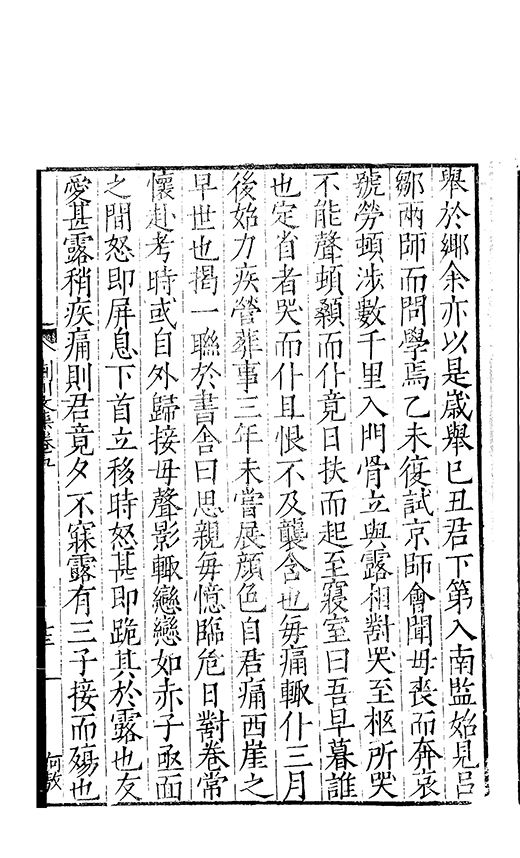 舉於鄉余亦以是歲舉巳丑君下第入南監始見呂
鄒兩師而問學焉乙未復試京師會聞毋喪而奔哀
號勞頓涉數千里入門骨立與露相對哭至柩所哭
不能聲頓顙而仆竟日扶而起至寢室曰吾早暮誰
也定省者哭而仆且恨不及襲含也毎痛輙仆三月
後始力疾營葬事三年未嘗展顔色自君痛西崖之
早世也揭一聯於書舎曰思親毎憶臨危日對卷常
懷赴考時或自外歸接毋聲影輙戀戀如赤子亟面
之間怒即屏息下首立移時怒甚即跪其於露也友
愛甚露稍疾痛則君竟夕不寐露有三子接而殤也
文集卷九
十三
何敖